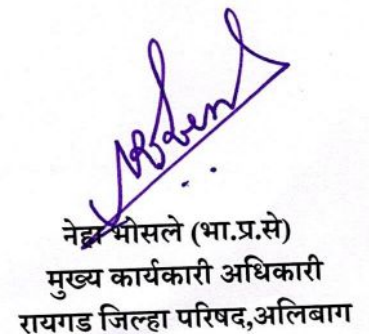 नेहा भोसले (भा.प्र.से)
मुख्य कार्यकारी अधिकारी
रायगड जिल्हा परिषद,अलिबाग